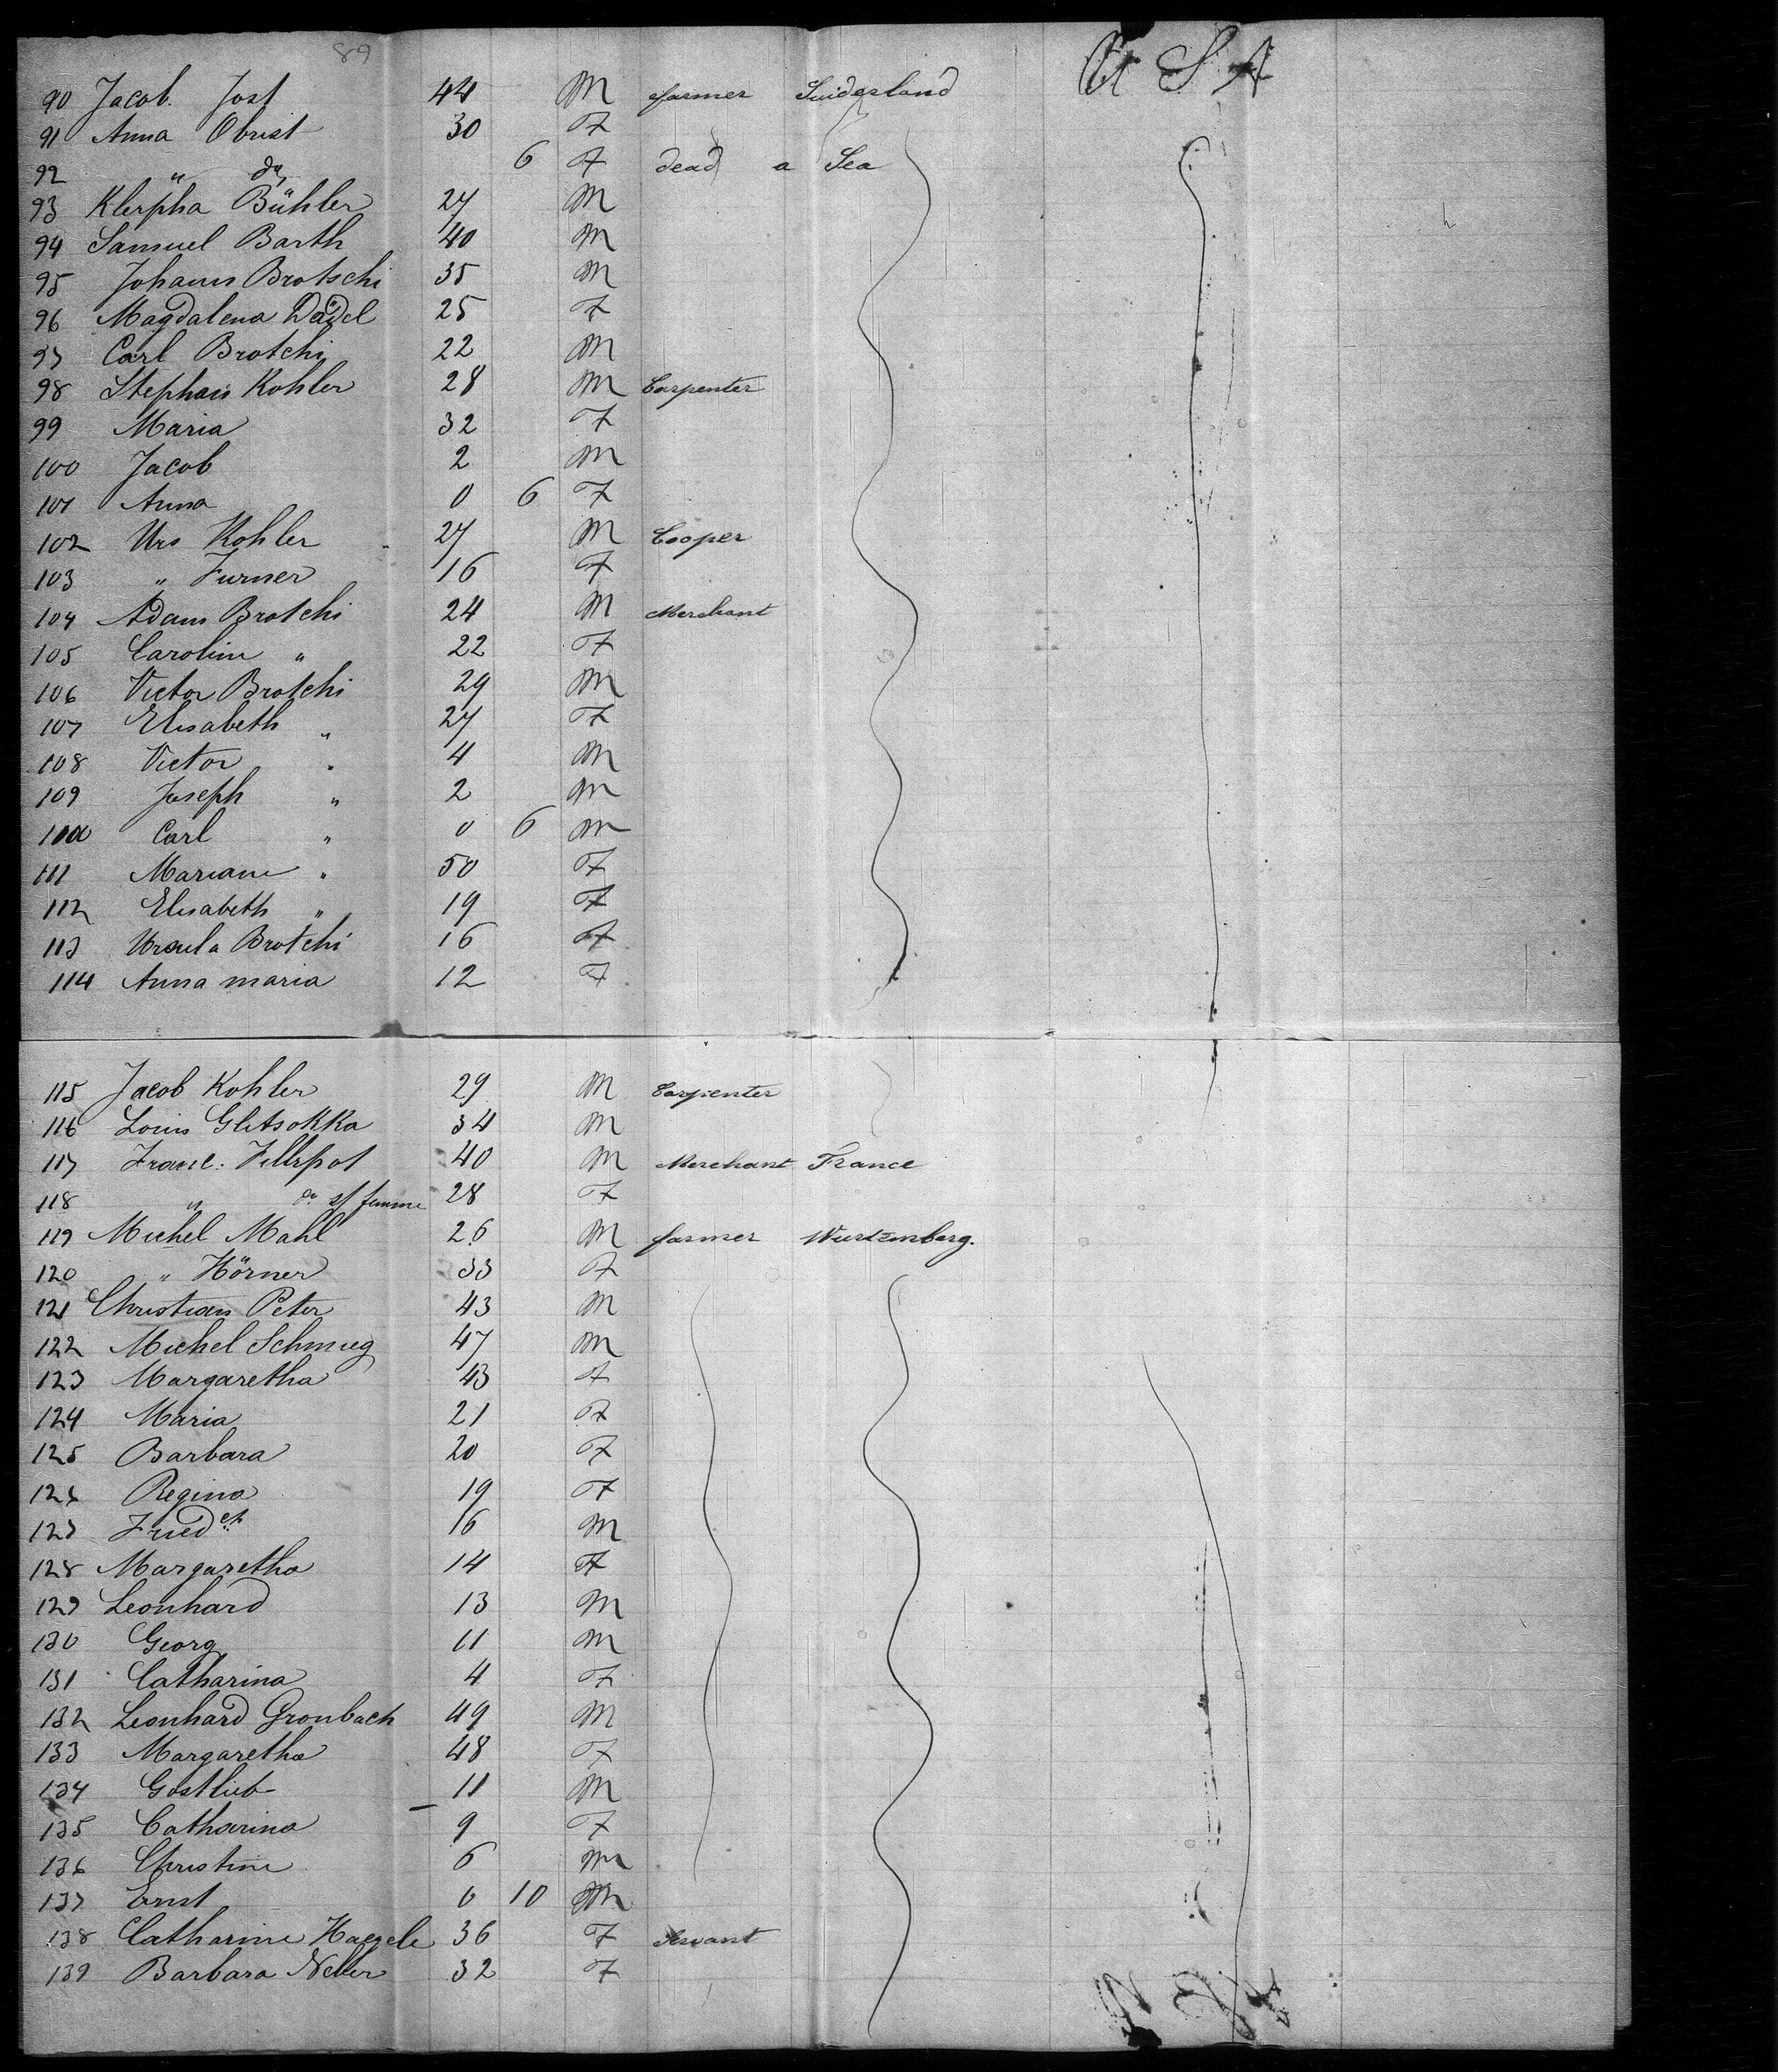 89
U S A
90 Jacob. Jost 44 M farmer Suiderland
91 Anna Obrist 30 F
92 " do 6 F dead a Sea
93 Klerpha Bühler 27 M
94 Samuel Barth 40 M
95 Johann Brotschi 35 M
96 Magdalena Dädel 25 F
97 Carl Brotchi 22 M
98 Stephan Kohler 28 M Carpenter
99 Maria 32 F
100 Jacob 2 M
101 Anna 0 6 F
102 Urs Kohler 27 M Cooper
103 " Furner 16 F
104 Adam Brotchi 24 M Merchant
105 Caroline " 22 F
106 Victor Brotchi 29 M
107 Elisabeth " 27 F
108 Victor " 4 M
109 Joseph " 2 M
110 Carl " 0 6 M
111 Mariane " 50 F
112 Elisabeth " 19 F
113 Ursula Brotchi 16 F
114 Anna maria 12 F
115 Jacob Kohler 29 M Carpenter
116 Louis Glitsokka 34 M
117 Franc. 40 M Merchant France
118 " do s/ femme 28 F
119 Michel Mahl 26 M farmer Wurtemberg.
120 " Hörner 33 F
121 Christian Peter 43 M
122 Michel Schmieg 47 M
123 Margaretha 43 F
124 Maria 21 F
125 Barbara 20 F
126 Regina 19 F
127 Friedch 16 M
128 Margaretha 14 F
129 Leonhard 13 M
130 Georg 11 M
131 Catharina 4 F
132 Leonhard Gronbach 49 M
133 Margaretha 48 F
134 Gostlieb 11 M
135 Catharina 9 F
136 Christine 6 M
137 Ernst 0 10 M
138 Catharine Haegele 36 F Servant
139 Barbara 32 F